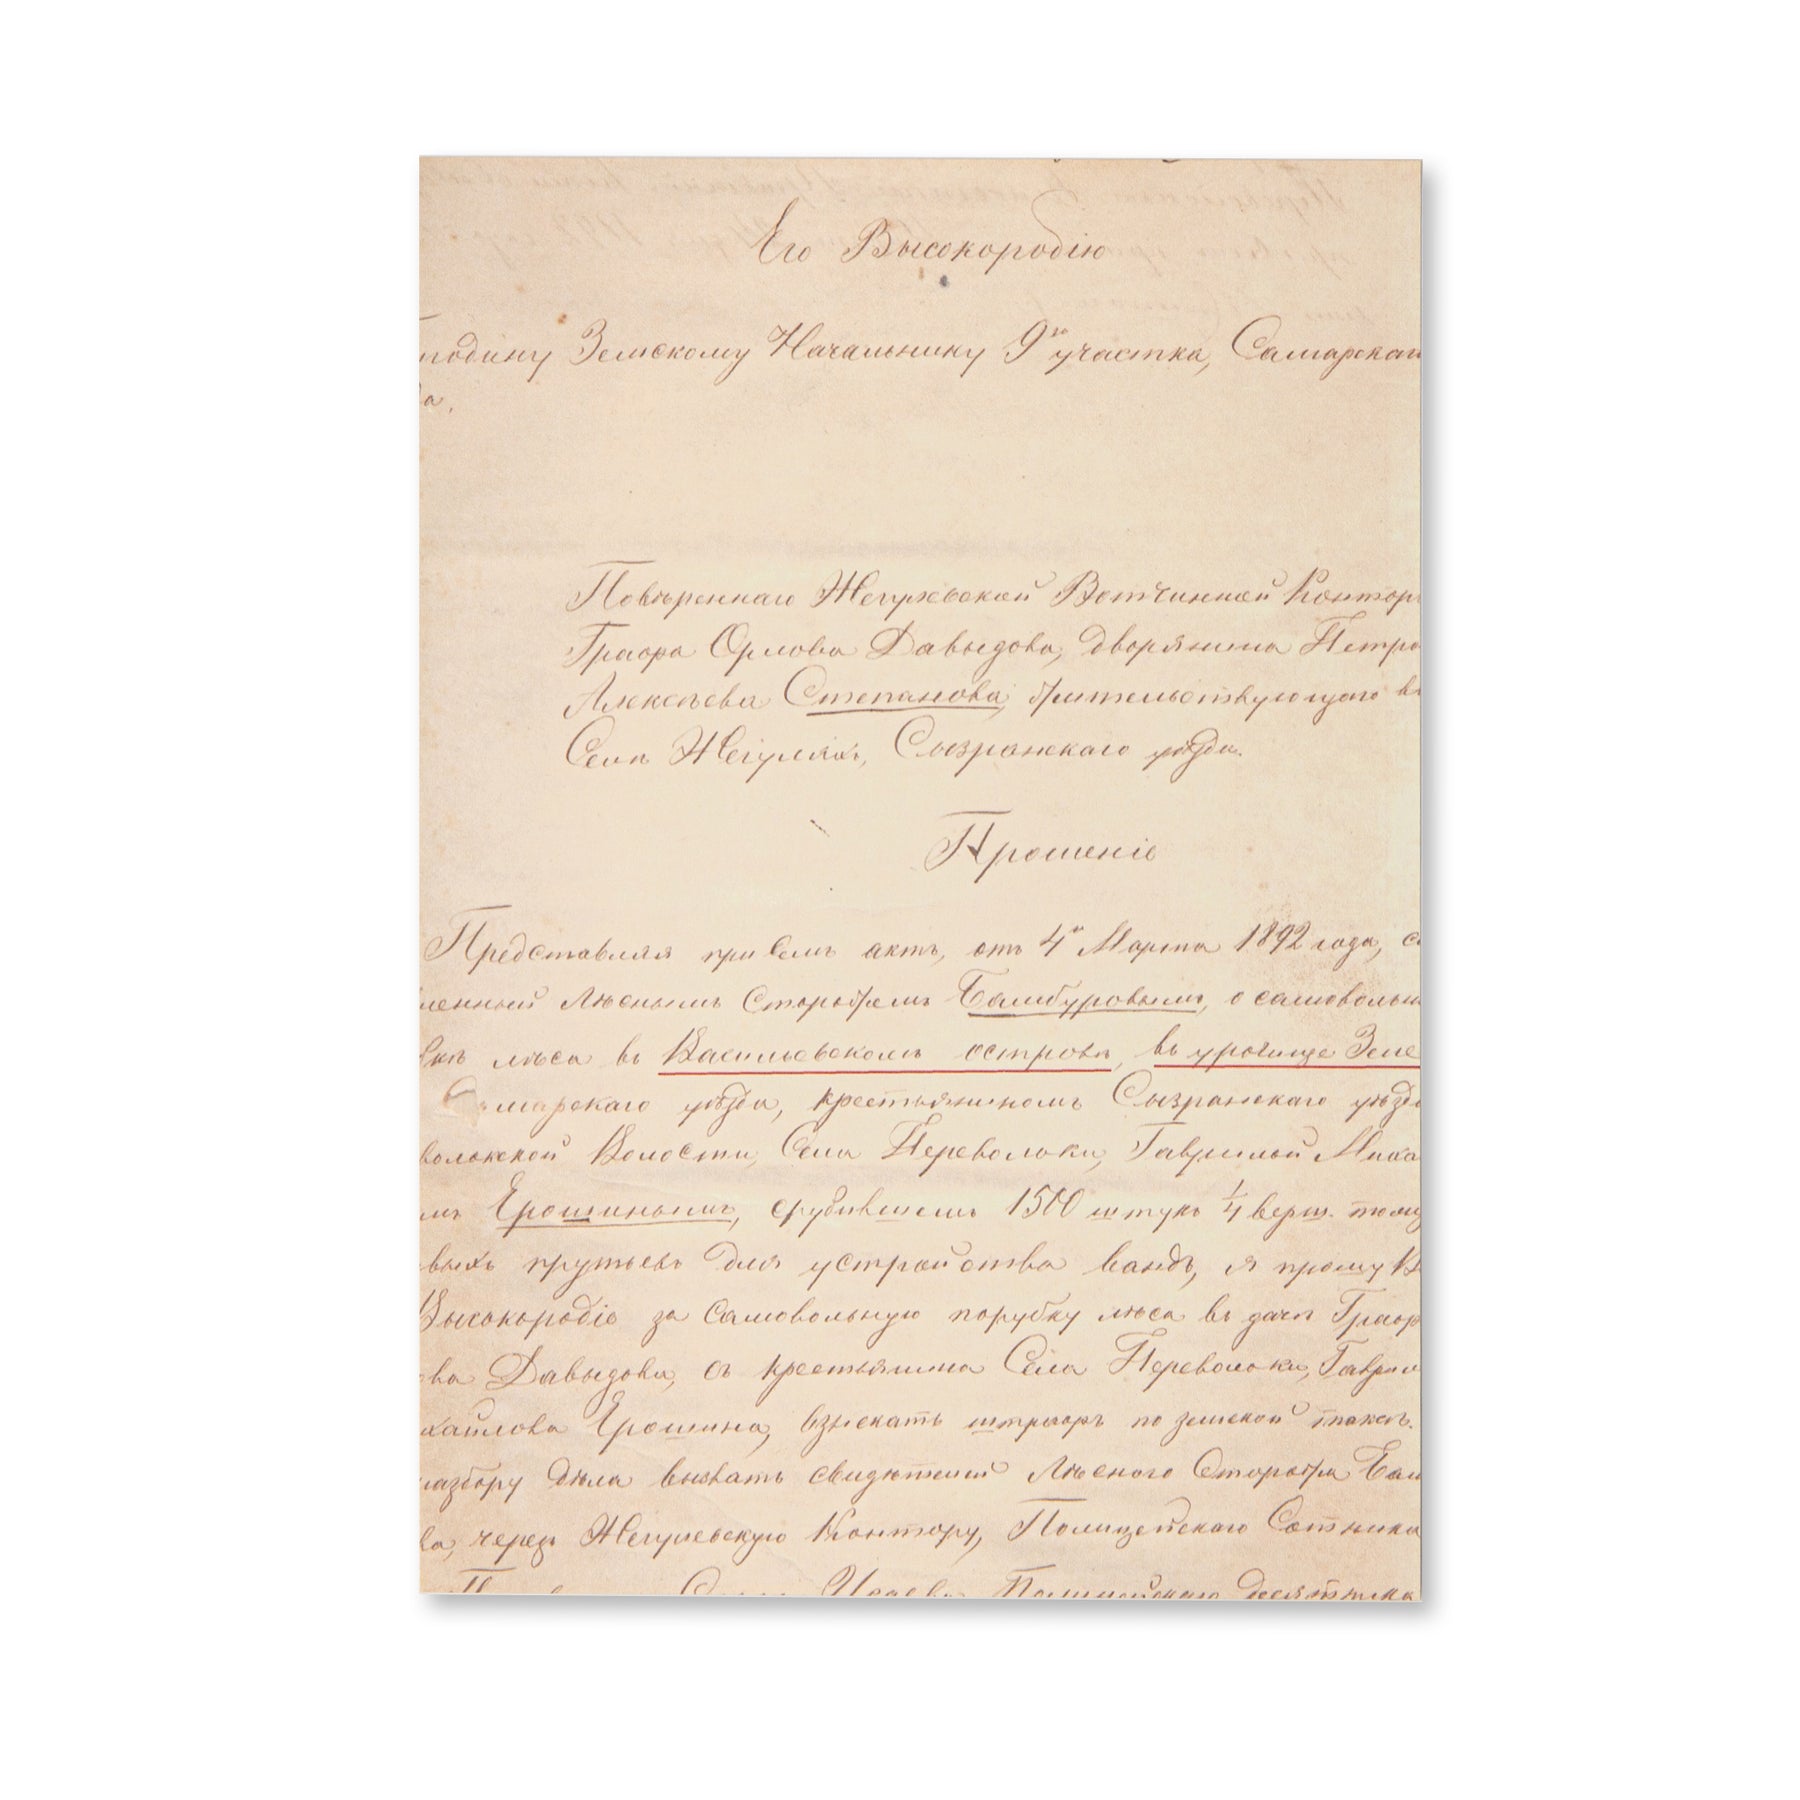 Его Высокородію
сподину Земскому Начальнику 9го участка, Самарскаг
да.
Повѣреннаго Жегулевской Вотчинной Контор
Графа Орлова Давыдова, дворянина Петра
Алексѣева Степанова, жительствующаго въ
Селѣ Жегуляхъ, Сызранскаго уѣзда.
Прошеніе
Представляя при семъ актъ, отъ 4го Марта 1892 года, со
вленный Лѣснымъ Сторожемъ Бамбуровымъ, о самовольн
бкѣ лѣса въ Васильевскомъ островѣ, въ урочище Зеле
Самарскаго уѣзда, крестьяниномъ Сызранскаго уѣзд
волокской Волости, Села Переволоки, Гавриломъ Миха
мъ Ерошинымъ, срубившемъ 1500 штукъ 1/4 верш. толщ
выхъ прутьевъ для устройства вандъ, я прошу В
Высокородіе за самовольную порубку лѣса въ дачѣ Граф
ова Давыдова, съ крестьянина Села Переволоки, Гаврил
хайлова Ерошина, взыскать штрафъ по земской таксѣ.
разбору дѣла вызвать свидѣтелей Лѣсного Сторожа Бам
ва, черезъ Жегулевскую Контору, Полицейскаго Сотника
Полицейскаго десятника